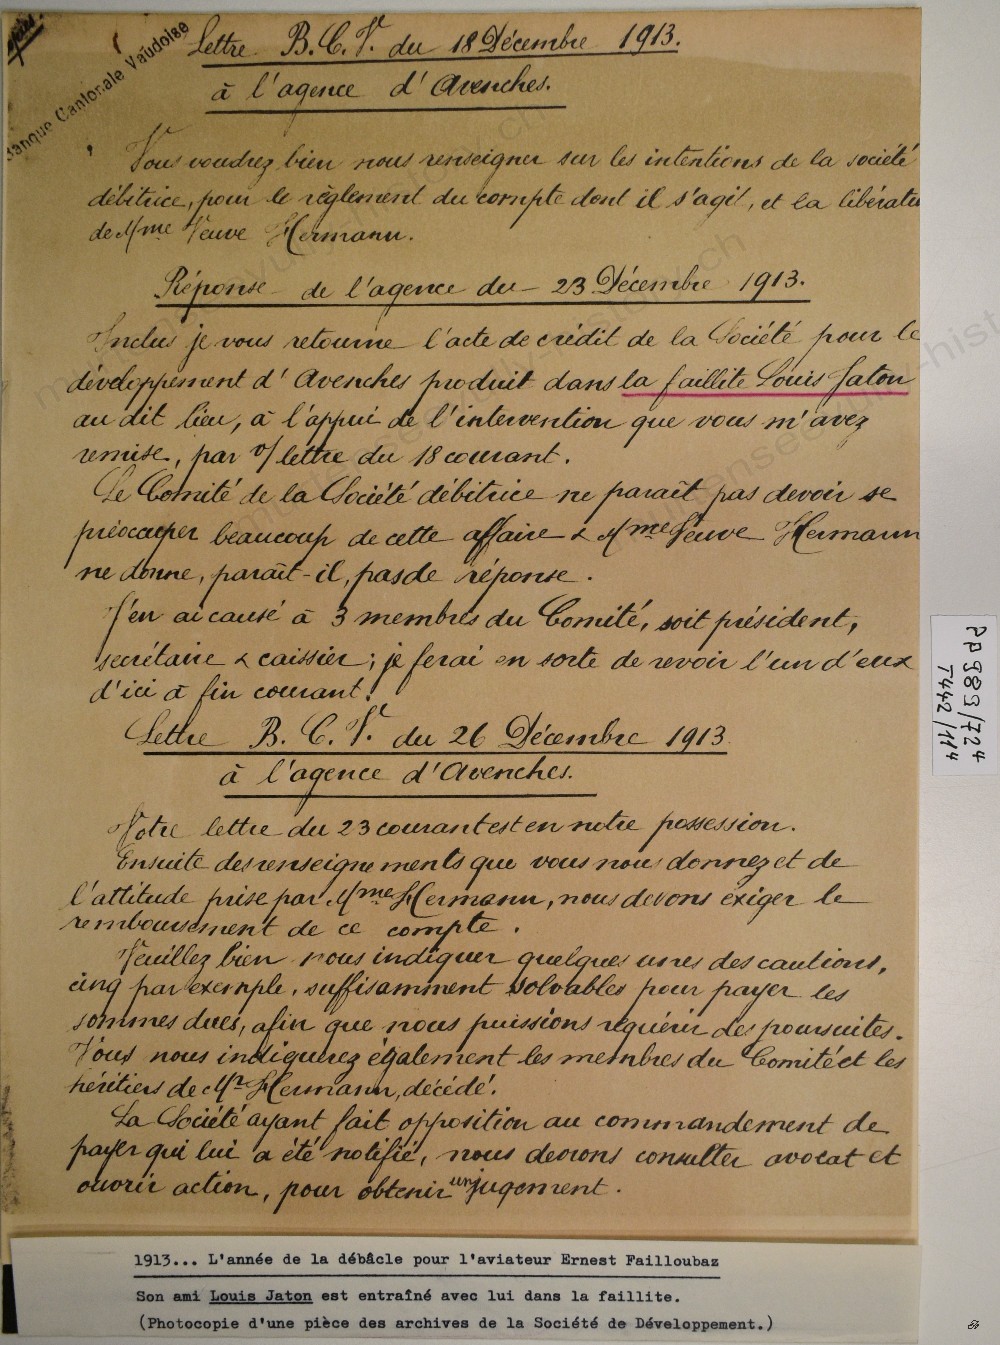 Copie.
Banque Cantonale Vaudoise
Lettre B. C. V. du 18 Décembre 1913.
à l'agence d'Avenches.
Vous voudrez bien nous renseigner sur les intentions de la société
débitrice, pour le règlement du compte dont il s'agit, et la libérati
de Mme Veuve Hermann.
Réponse de l'agence du 23 Décembre 1913.
Inclus je vous retourne l'acte de crédit de la Société pour le
développement d'Avenches produit dans la faillite Louis Jaton
au dit lieu, à l'appui de l'intervention que vous m'avez
remise, par v/ lettre du 18 courant.
Le Comité de la Société débitrice ne paraît pas devoir se
préoccuper beaucoup de cette affaire & Mme Veuve Hermann
ne donne, paraît-il, pas de réponse.
J'en ai causé à 3 membres du Comité, soit président,
secrétaire & caissier; je ferai en sorte de revoir l'un d'eux
d'ici à fin courant.
Lettre B. C. V. du 26 Décembre 1913
à l'agence d'Avenches.
Votre lettre du 23 courant est en notre possession.
Ensuite des renseignements que vous nous donnez et de
l'attitude prise par Mme Hermann, nous devons exiger le
remboursement de ce compte.
Veuillez bien nous indiquer quelques unes des cautions,
cinq par exemple, suffisamment solvables pour payer les
sommes dues, afin que nous puissions requérir des poursuites.
Vous nous indiquerez également les membres du Comité et les
héritiers de Mr Hermann, décédé.
La Société ayant fait opposition au commandement de
payer qui lui a été notifié, nous devrons consulter avocat et
ouvrir action, pour obtenir un jugement.
PP989/724
T442/114
1913... L'année de la débâcle pour l'aviateur Ernest Failloubaz
Son ami Louis Jaton est entraîné avec lui dans la faillite.
(Photocopie d'une pièce des archives de la Société de Développement.)